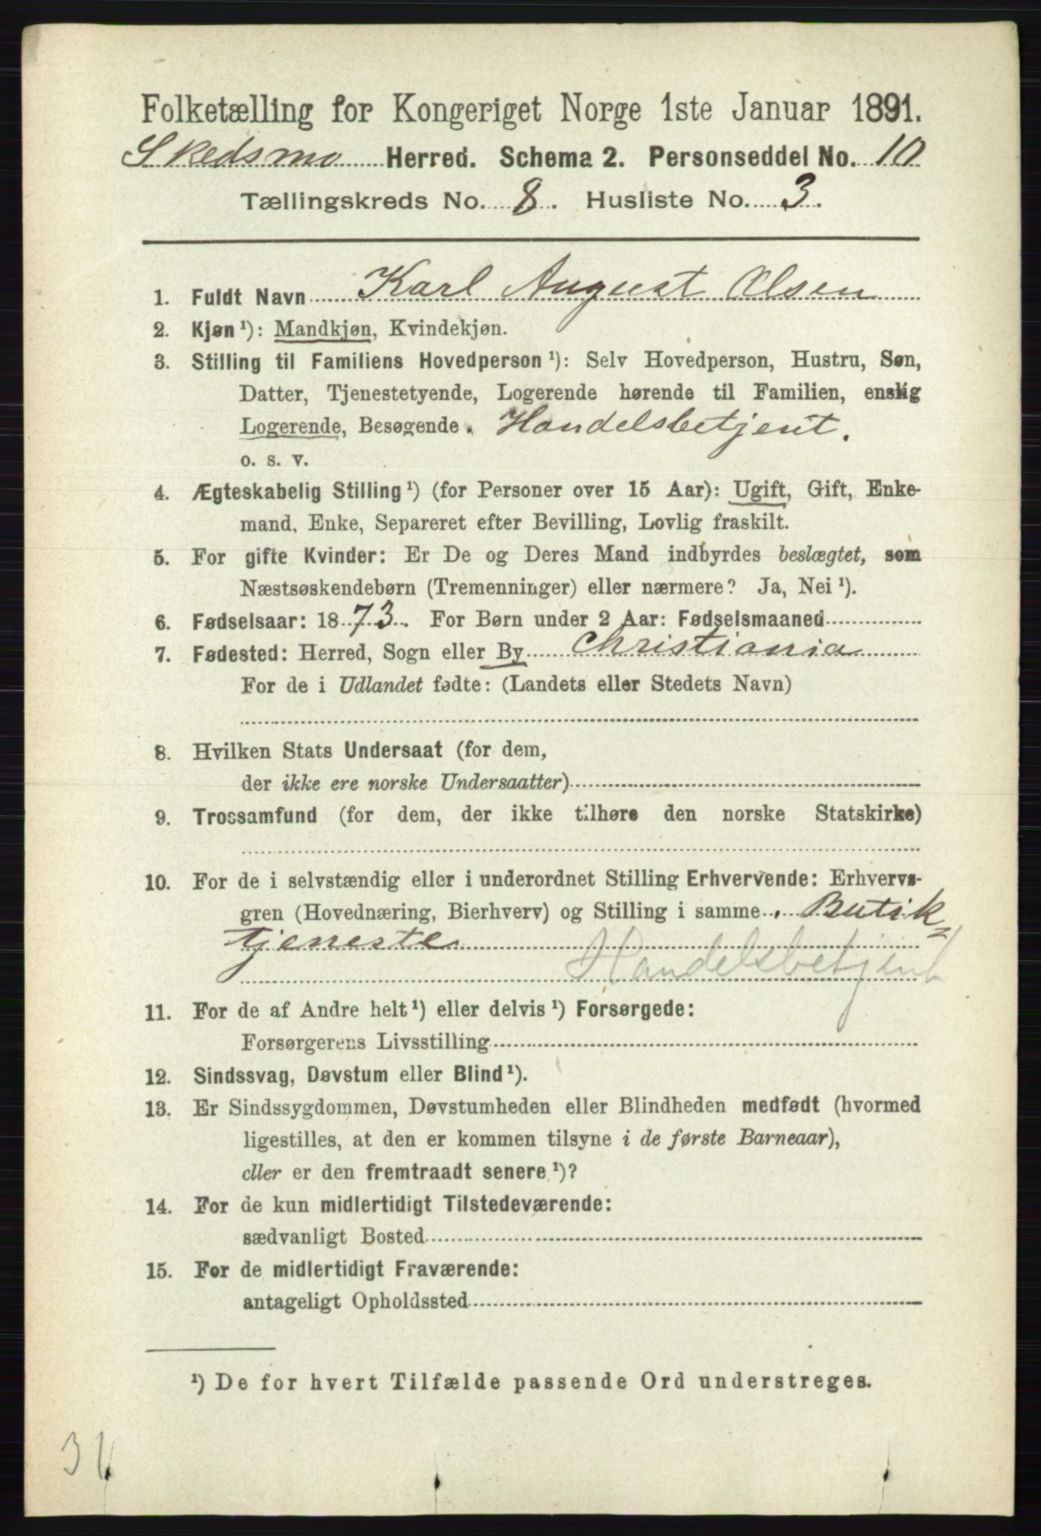 Folketælling for Kongeriget Norge 1ste Januar 1891.
Skedsmo Herred. Schema 2. Personseddel No. 10
Tællingskreds No. 8. Husliste No. 3.
1. Fuldt Navn Karl August Olsen
2. Kjøn ¹): Mandkjøn, Kvindekjøn.
3. Stilling til Familiens Hovedperson ¹): Selv Hovedperson, Hustru, Søn,
Datter, Tjenestetyende, Logerende hørende til Familien, enslig
Logerende, Besøgende. Handelsbetjent.
o. s. v.
4. Ægteskabelig Stilling ¹) (for Personer over 15 Aar): Ugift, Gift, Enke-
mand, Enke, Separeret efter Bevilling, Lovlig fraskilt.
5. For gifte Kvinder: Er De og Deres Mand indbyrdes beslægtet, som
Næstsøskendebørn (Tremenninger) eller nærmere? Ja, Nei ¹).
6. Fødselsaar: 1873. For Børn under 2 Aar: Fødselsmaaned
7. Fødested: Herred, Sogn eller By Christiania
For de i Udlandet fødte: (Landets eller Stedets Navn)
8. Hvilken Stats Undersaat (for dem,
der ikke ere norske Undersaatter)
9. Trossamfund (for dem, der ikke tilhøre den norske Statskirke)
10. For de i selvstændig eller i underordnet Stilling Erhvervende: Erhvervs-
gren (Hovednæring, Bierhverv) og Stilling i samme. Butik=
tjeneste
Handelsbetjent
11. For de af Andre helt ¹) eller delvis ¹) Forsørgede:
Forsørgerens Livsstilling
12. Sindssvag, Døvstum eller Blind ¹).
13. Er Sindssygdommen, Døvstumheden eller Blindheden medfødt (hvormed
ligestilles, at den er kommen tilsyne i de første Barneaar),
eller er den fremtraadt senere ¹)?
14. For de kun midlertidigt Tilstedeværende:
sædvanligt Bosted
15. For de midlertidigt Fraværende:
antageligt Opholdssted
¹) De for hvert Tilfælde passende Ord understreges.